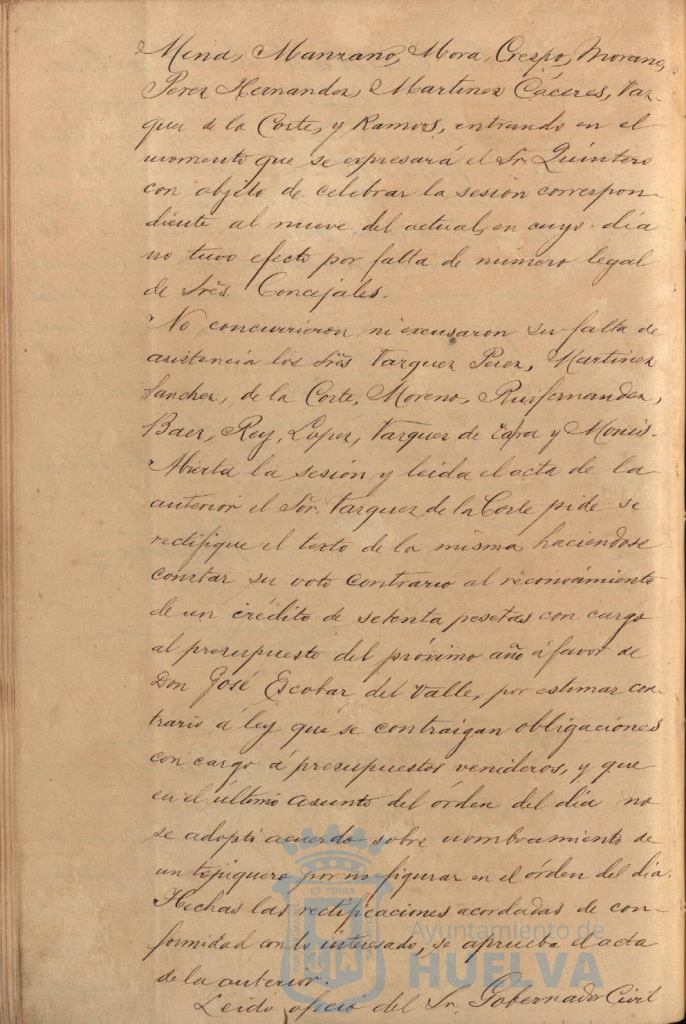 Mina, Manzano, Mora, Crespo, Morano,
Perez Hernandez, Martinez Cáceres, Vaz-
quez de la Corte, y Ramos, entrando en el
momento que se expresará el Sr. Quintero
con objeto de celebrar la sesión correspon-
diente al nueve del actual, en cuyo día
no tuvo efecto por falta de número legal
de Srēs. Concejales.
No concurrieron ni excusaron su falta de
asistencia los Srēs Vazquez Perez, Martinez
Sanchez, de la Corte, Moreno, Ruifernandez,
Baez, Rey, Lopez, Vazquez de Zafra y Monis.
Abierta la sesión y leida el acta de la
anterior el Sor. Vazquez de la Corte pide se
rectifique el texto de la misma haciendose
constar su voto contrario al reconocimiento
de un crédito de setenta pesetas con cargo
al presupuesto del próximo año á favor de
Don José Escobar del Valle, por estimar con-
trario á ley que se contraigan obligaciones
con cargo á presupuestos venideros, y que
en el último asunto del órden del dia no
se adoptó acuerdo sobre nombramiento de
un por no figurar en el órden del dia.
Hechas las rectificaciones acordadas de con-
formidad con lo interesado, se aprueba el acta
de la anterior.
Leido oficio del Sr. Gobernador Civil
ET TERRA
Ayuntamiento de
HUELVA